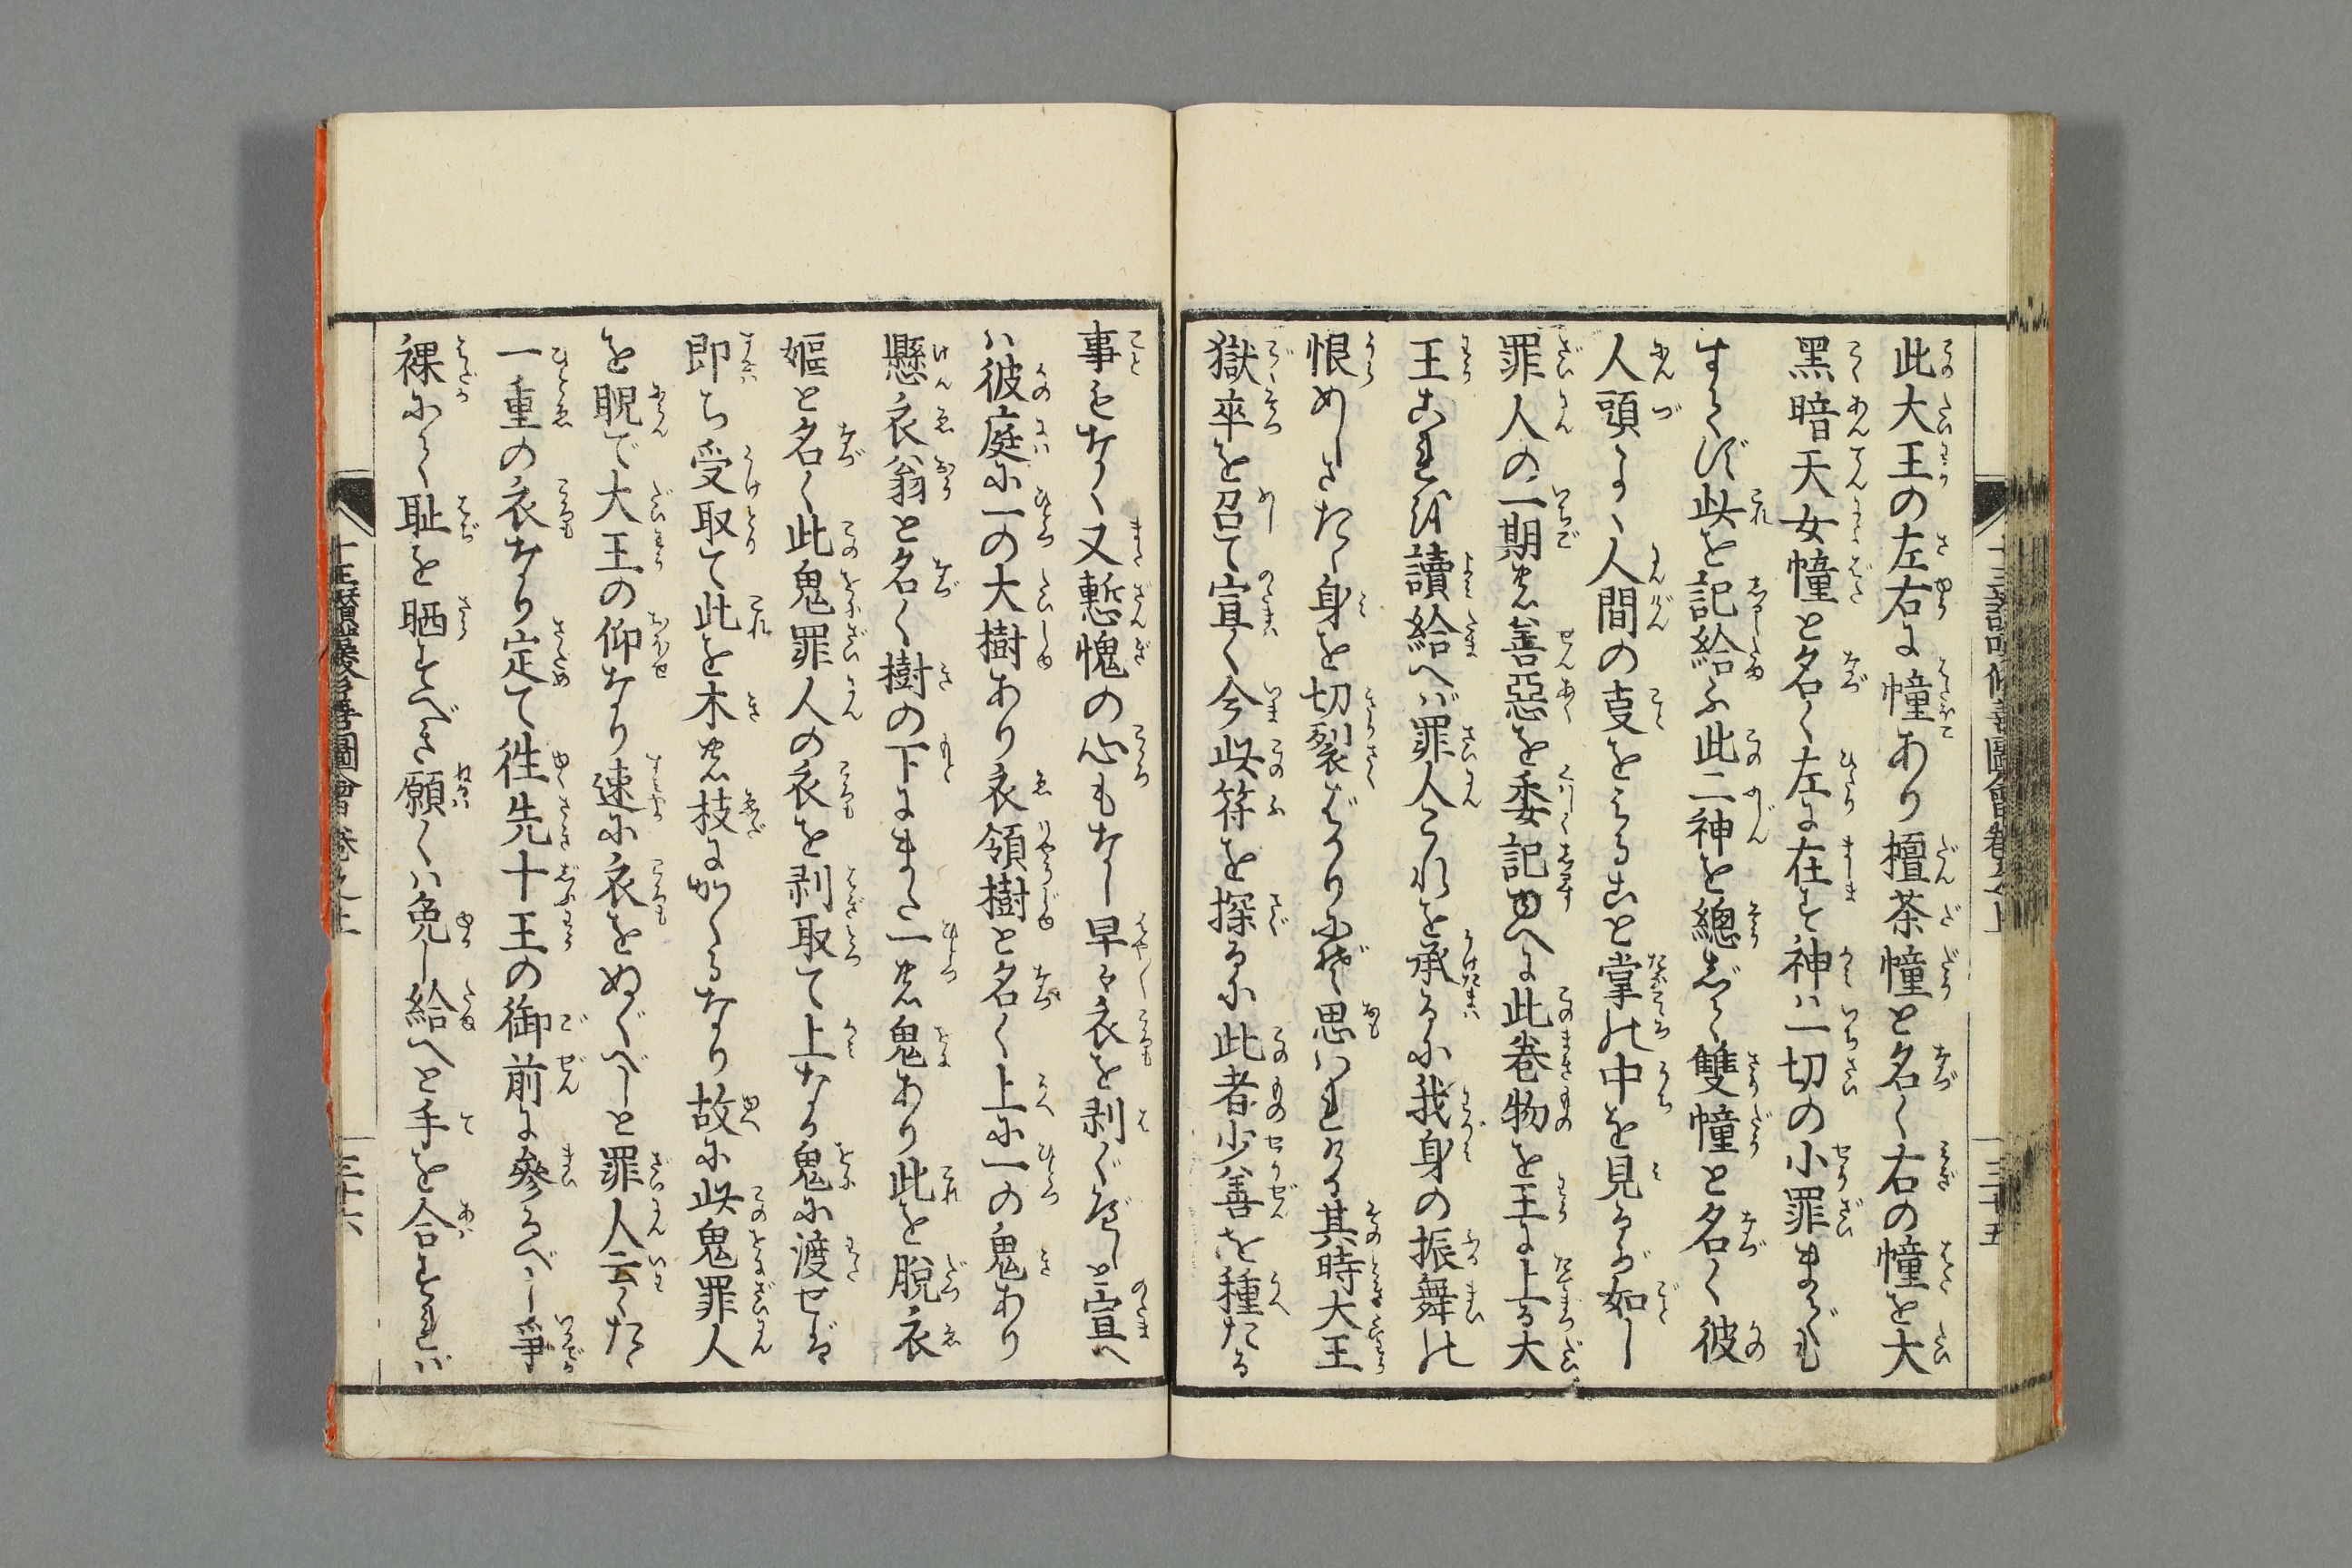 此大王の左右に幢あり檀荼幢と名く右の幢を大
黒暗天女幢と名く左に在す神は一切の小罪までも
すてず此を記給ふ此二神を總じて雙幢と名く彼
人頭よく人間の叓をみること掌の中を見るが如し
罪人の一期の善惡を委記ゆへに此巻物を王に上る大
王これを讀給へば罪人これを承るに我身の振舞の
恨めしさたゞ身を切裂ばかりにぞ思はれける其時大王
獄卒を召て宣く今此符を探るに此者少善を種たる
事もなく又慙愧の心もなし早々衣を剥ぐべしと宣へ
は彼庭に一の大樹あり衣領樹と名く上に一の鬼あり
懸衣翁と名く樹の下にまた一の鬼あり此を脱衣
嫗と名く此鬼罪人の衣を剥取て上なる鬼に渡せば
即ち受取て此を木の枝にかくるなり故に此鬼罪人
を睨で大王の仰なり速に衣をぬぐべしと罪人云くたゞ
一重の衣なり定て徃先十王の御前に參るべし爭
裸にて恥を晒すべき願くは免し給へと手を合すれば
十王讃歎修善圖會巻之上
三十五
十王讃歎修善圖會巻之上
三十六